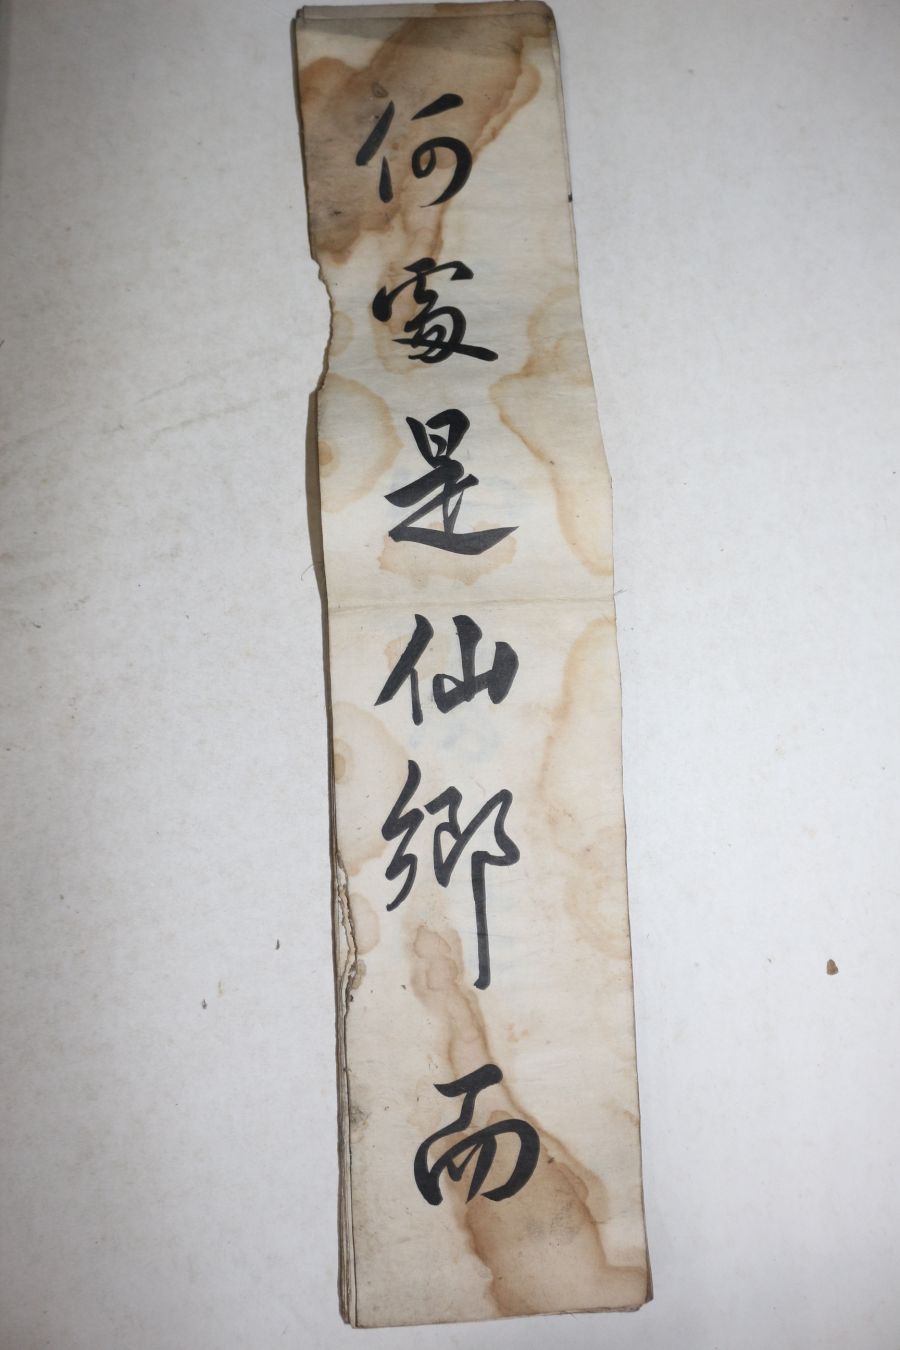 何處是仙鄉而